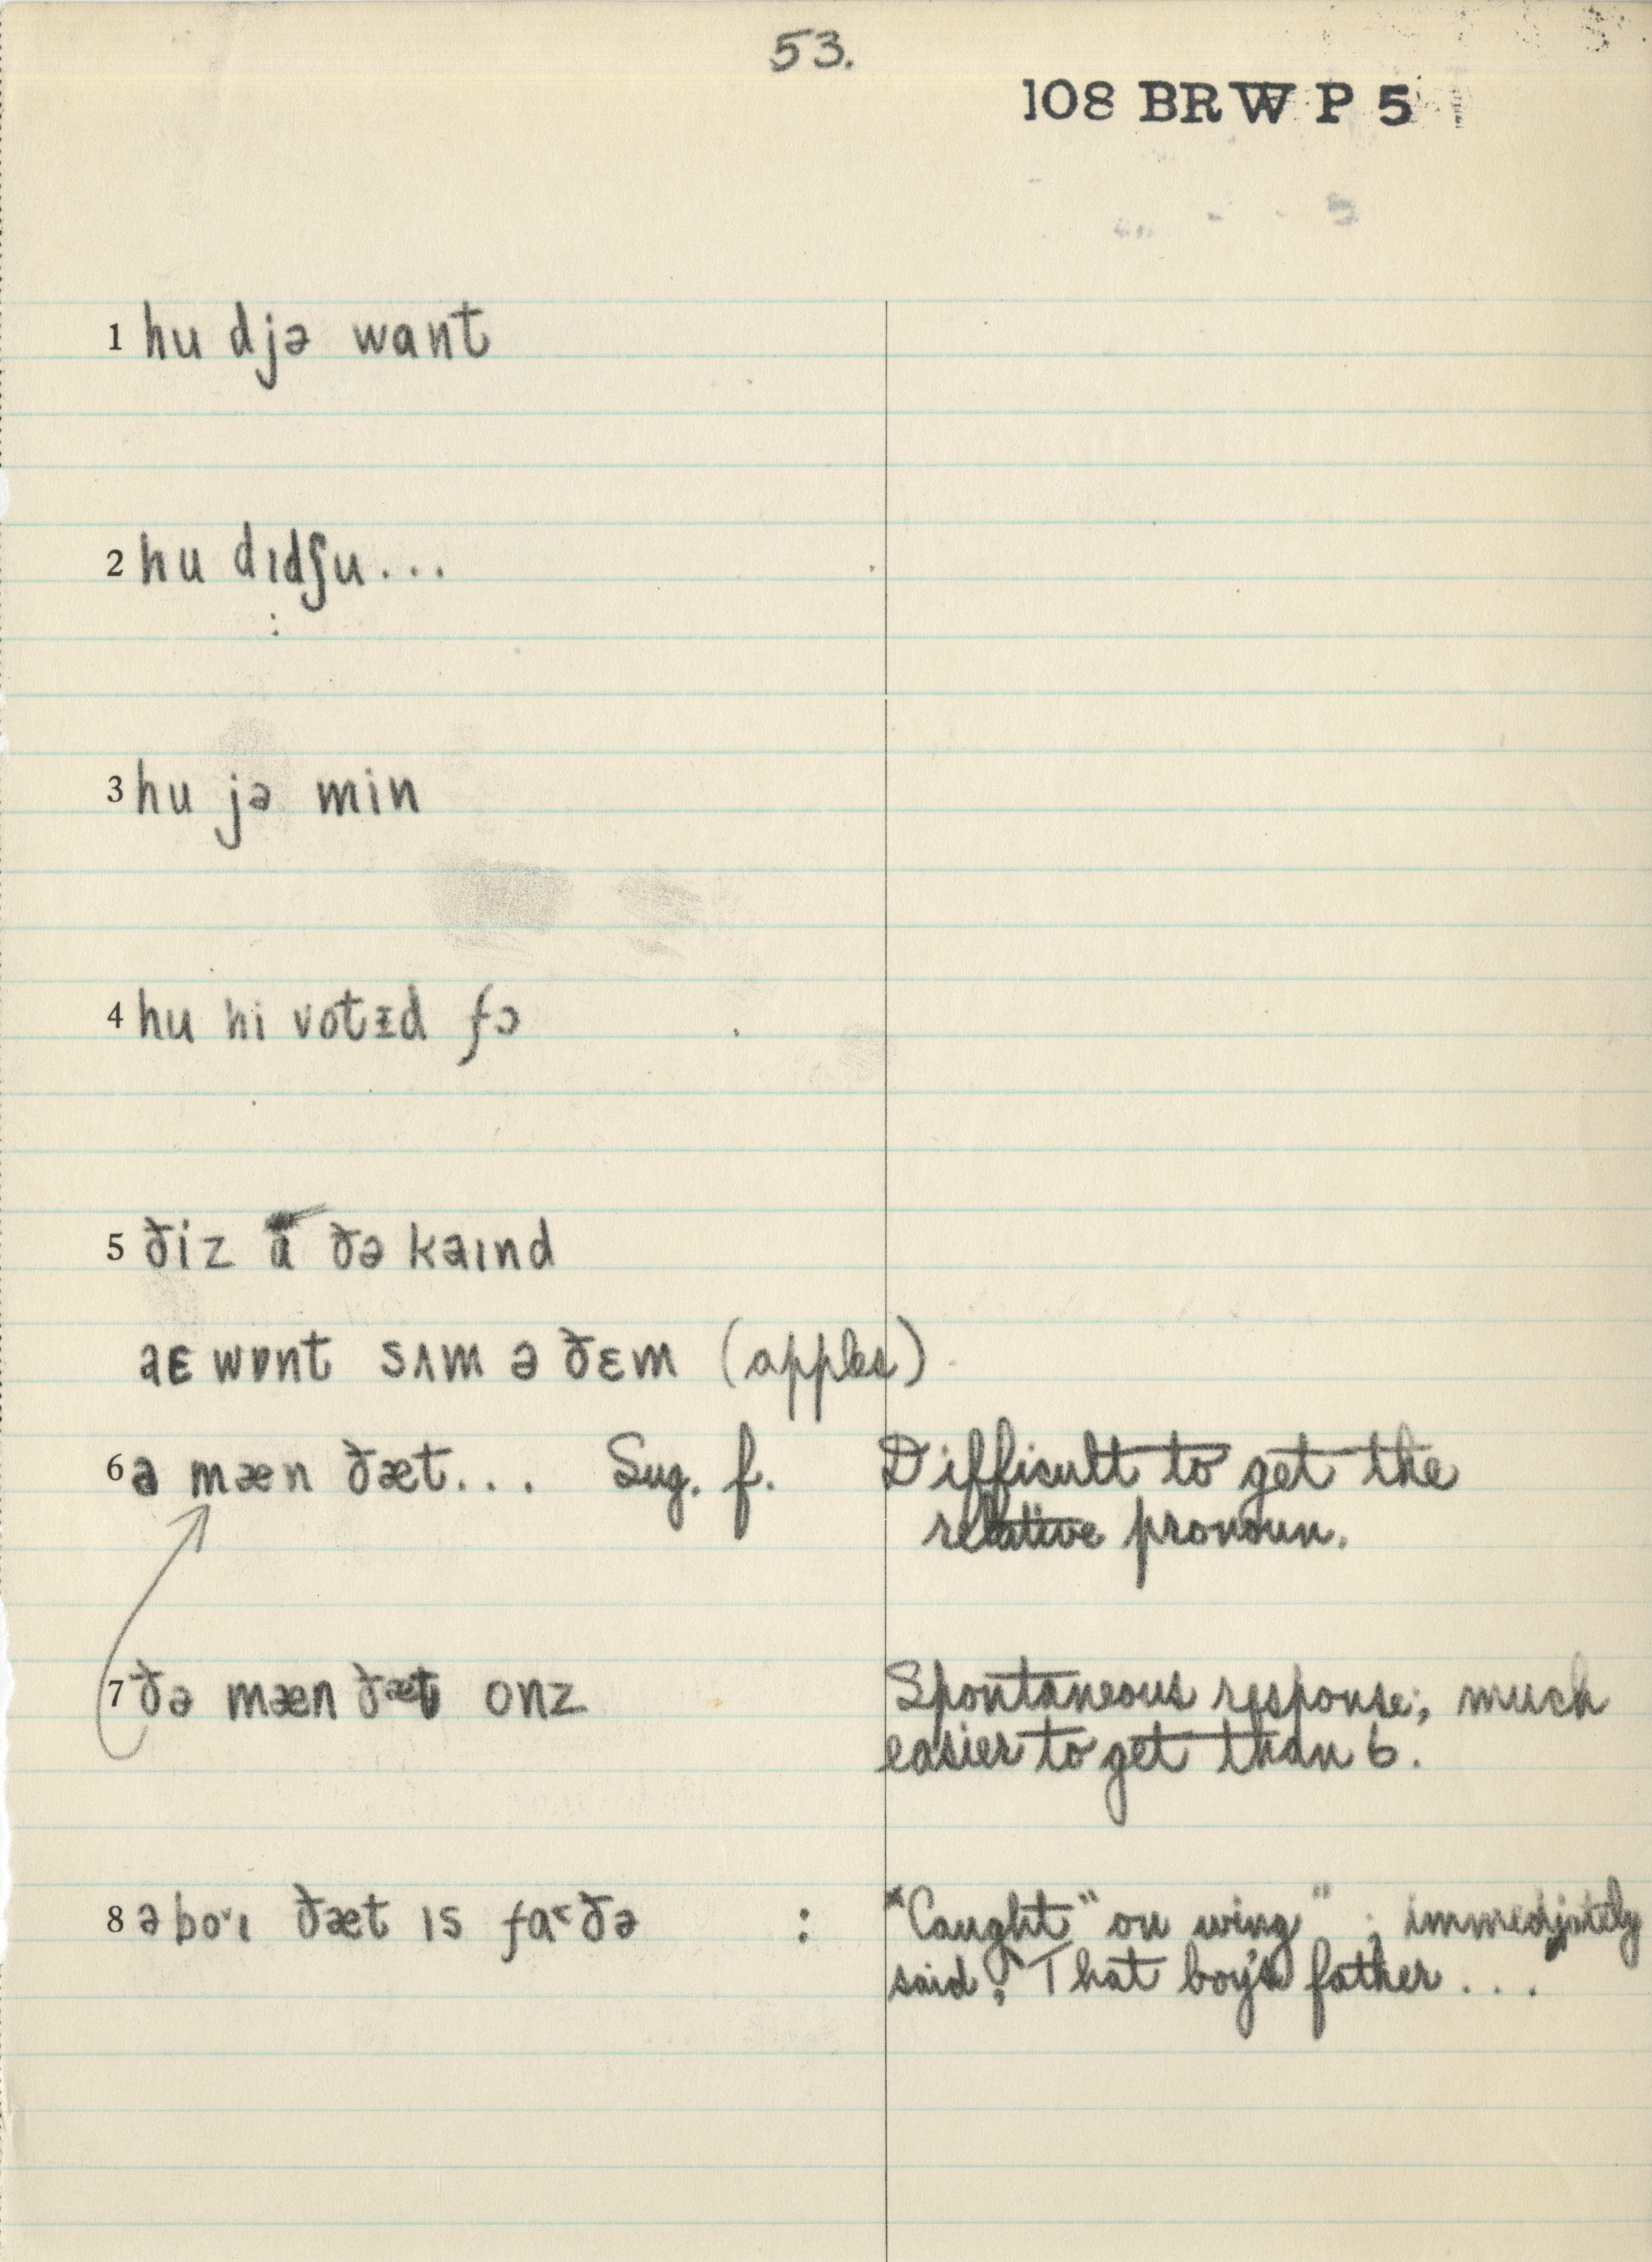 53.
108 BRW P 5
1 hu djə want
2 hu dɪdʃu...
:
3 hu jə min
4 hu hi votɪd fɔ
5 ðiz a ðə kaɪnd
aɛ wɒnt sʌm ə ðɛm (apples)
6 ə mæn ðæt... Sug. f. Difficult to get the
relative pronoun.
7 ðə mæn ðæt onz Spontaneous response; much
easier to get than 6.
8 ə bo˞ɪ ðæt ɪs fa˂ðə : "Caught "on wing" ; immediately
said: That boy's father...